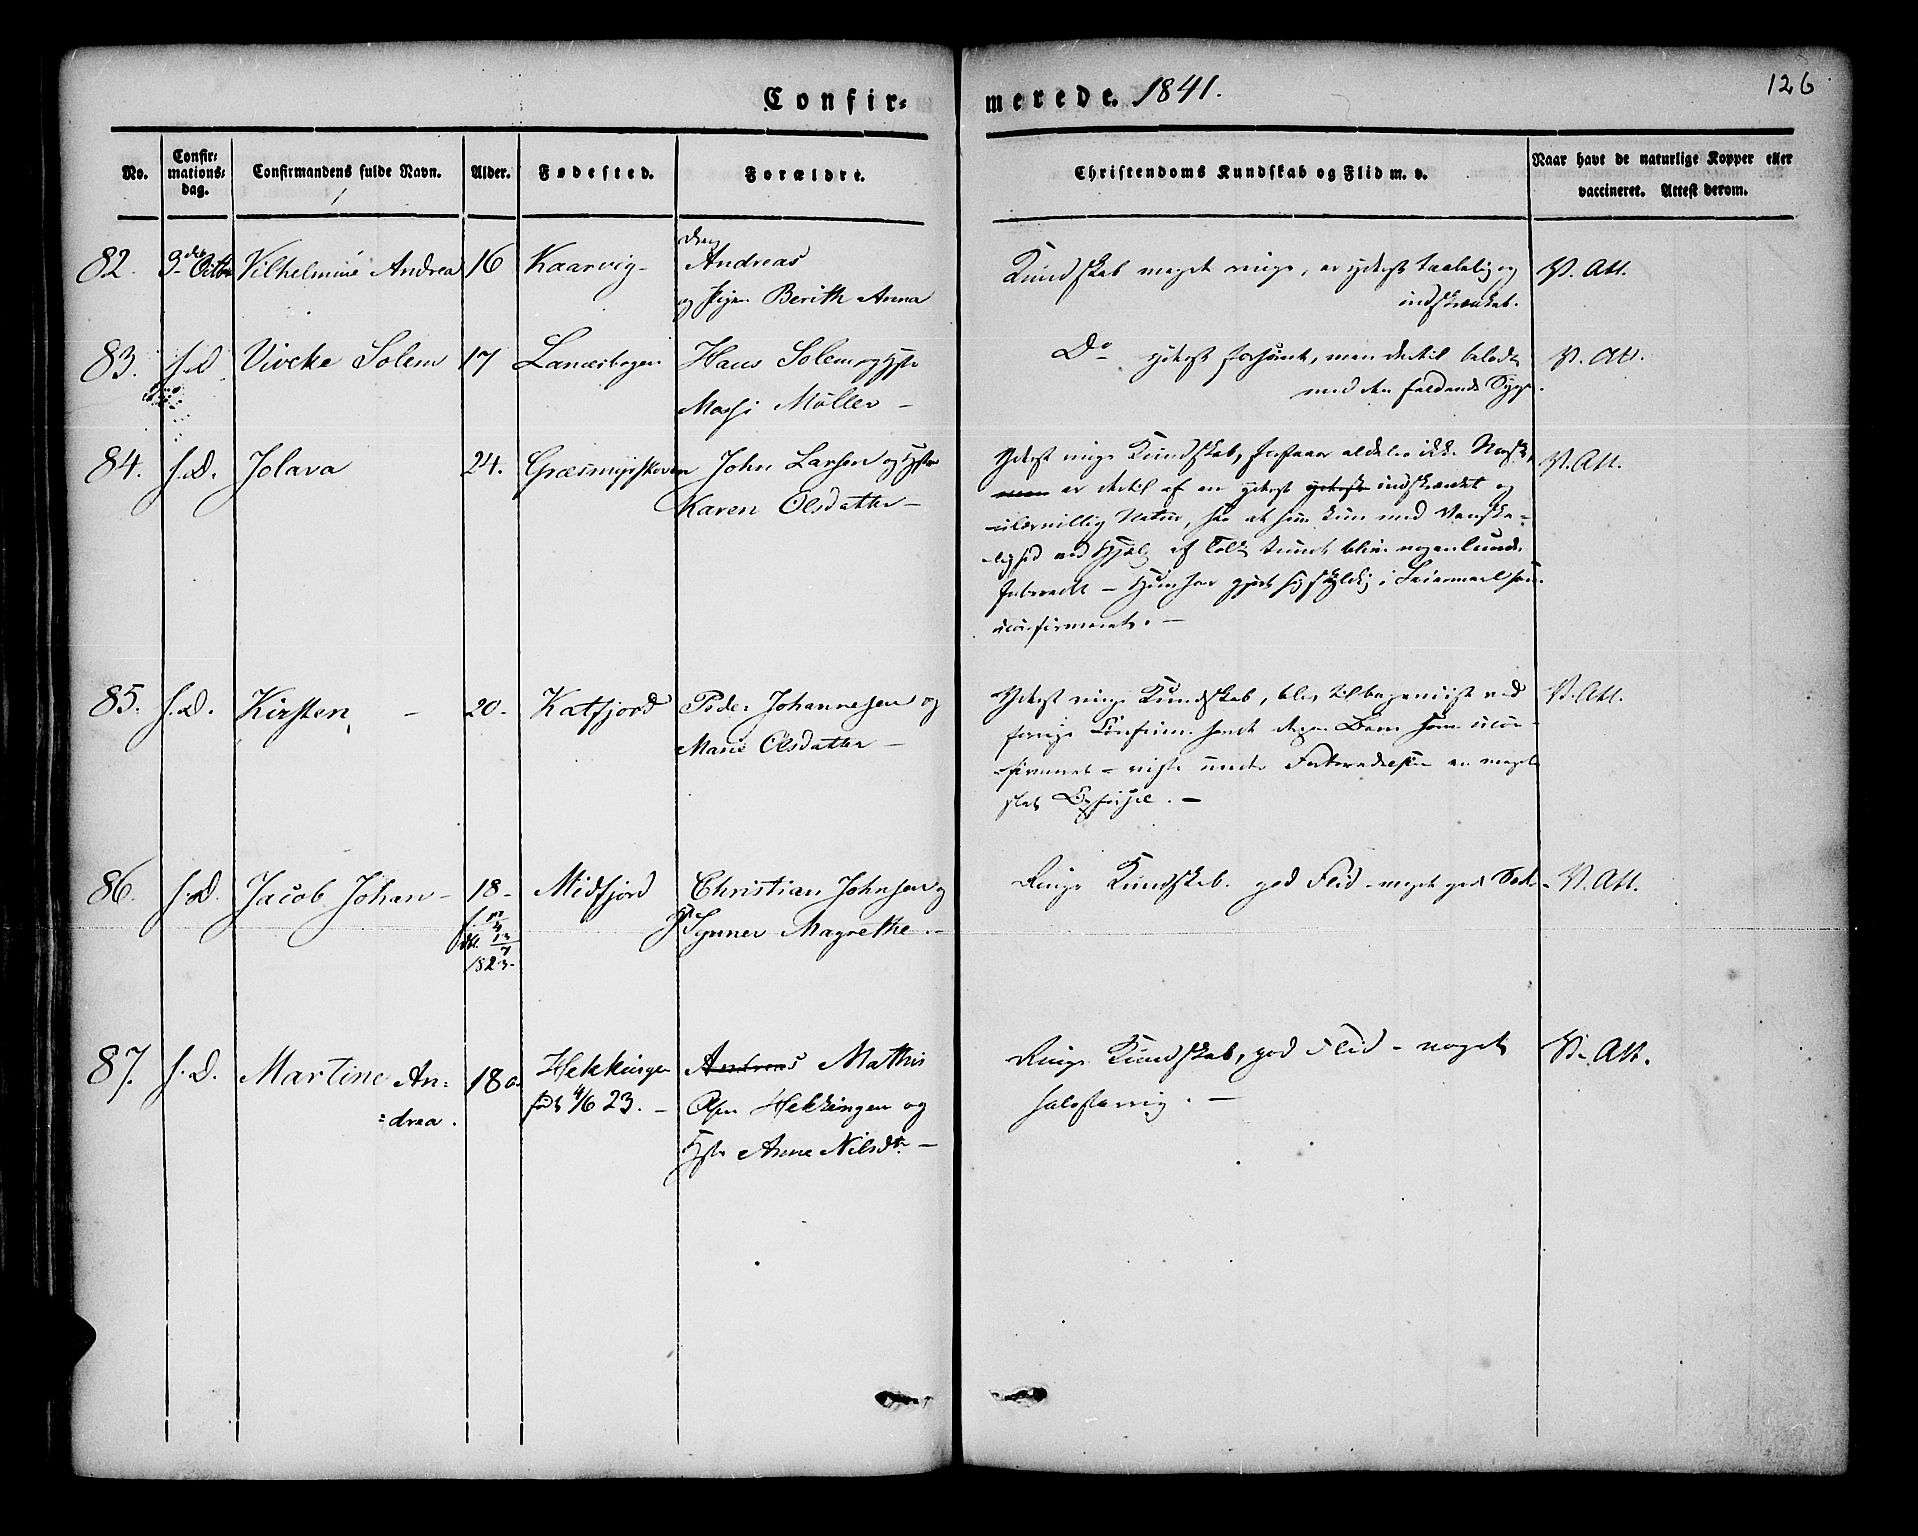 Confir-
merede. 1841.
126
No.
Confir-
mations-
dag.
Confirmandens fulde Navn.
Alder.
Fødested.
Forældre.
Christendoms Kundskab og Flid m. v.
Naar havt de naturlige Kopper eller
vaccineret. Attest derom.
82. 3die Octbr Vilhelmine Andrea 16 Kaarvig- Andreas
og Pigen Berith Anna
Kundskab meget ringe, er yderst taabelig og V. Att.
indskrænket.
83. s.D Vivcke Solem 17 Lanesbogen Hans Solem og Hstr
Marji Møller -
Do yderst forsømt, men dertil beladt V. Att.
med den faldende Syge.
84. s.D. Jolava 24. Græsmyrskoven John Larsen og Hstr
Karen Olsdatter -
Yderst ringe Kundskab, forstaaer aldeles ikke Norsk, V. Att.
men er dertil af en yderst yderst indskrænket og
ulærvillig Natur, saa at hun kun med Vanske-
lighed ved Hjelp af Tolk kunde blive nogenlunde
forberedt - Hun har gjort sig skyldig i Leiermaal som
uconfirmeret. -
85. s.D. Kirsten - 20- Katfjord Peder Johannesen og
Marie Olsdatter -
Yderst ringe Kundskab, blev tilbageviist ved V. Att.
forrige Confirm. havde Barn som ucon-
firmeret - viste under Forberedelsen en meget
slet Opførsel. -
86. s.D. Jacob Johan - 18- Midfjord Christian Johnsen og
Synner Magrethe. -
1823-
Ringe Kundskab. god Flid - meget god Sæd. - V. Att.
87. s.D. Martine An- 18 Hekkingen Andreas Mathis
=drea. født 4/6 23. - Olsen Hekkingen og
Hstr Anne Nilsdtr -
Ringe Kundskab, god Flid - noget V. Att.
halsstarrig. -